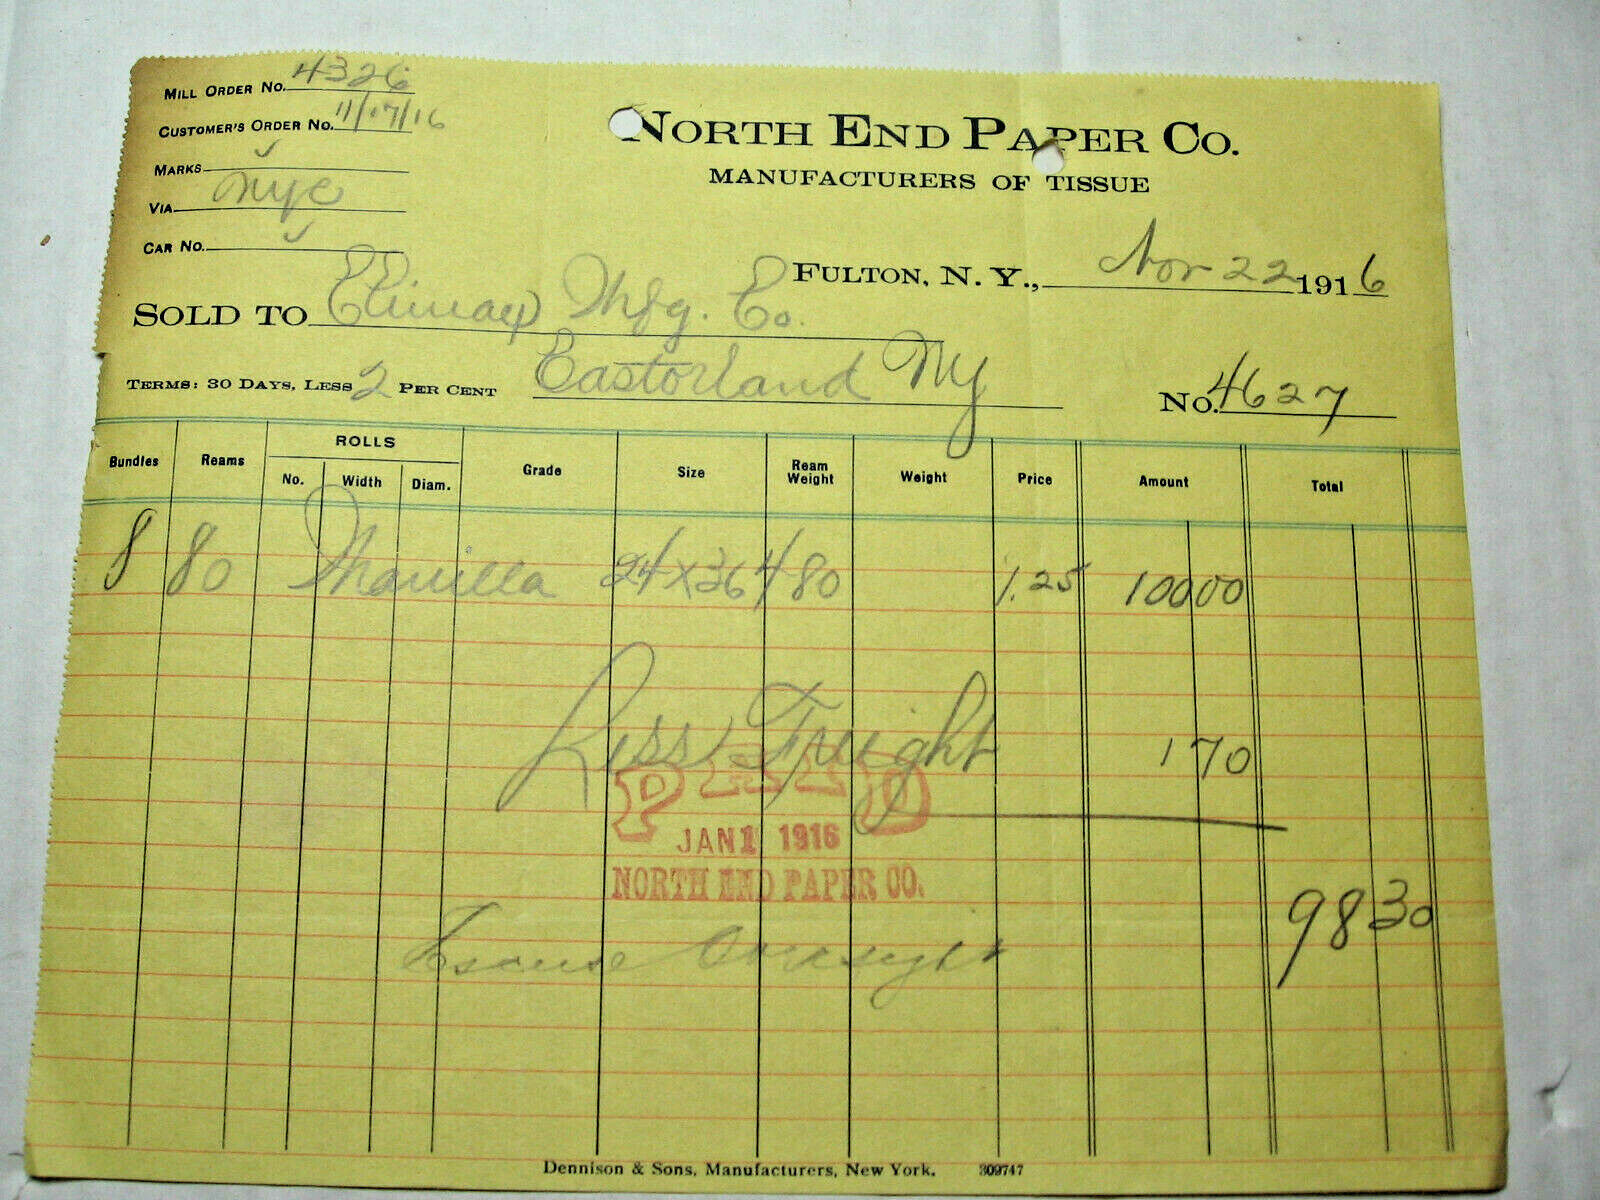 MILL ORDER NO. 4326
CUSTOMER'S ORDER NO. 11/17/16
MARKS ✓
VIA NYC
CAR NO. ✓
NORTH END PAPER CO.
MANUFACTURERS OF TISSUE
FULTON, N. Y., Nov 22 1916
SOLD TO Climax Mfg. Co.
TERMS: 30 DAYS, LESS 2 PER CENT Castorland NY
NO. 4627
Bundles Reams ROLLS No. Width Diam. Grade Size Ream Weight Weight Price Amount Total
8 80 Manilla 24x36 480 1.25 100 00
Less Freight 1 70
PAID
JAN 1 1916
NORTH END PAPER CO.
98 30
Excuse Oversight
Dennison & Sons, Manufacturers, New York. 309747